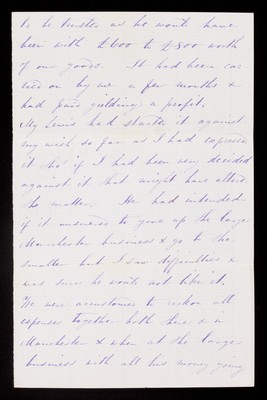 to be trusted as he would have
been with £600 to £800 worth
of our goods. It had been car
ried on by me a few months &
had paid yielding a profit.
My Lewis had started it against
my wish so far as I had expressed
it tho' if I had been very decided
against it that might have altered
the matter. He had intended
if it answered to give up the large
Manchester business & go to the
smaller but I saw difficulties &
was sure he would not like it.
We were accustomed to reckon all
expenses together both here & in
Manchester & when at the large
business with all his money going